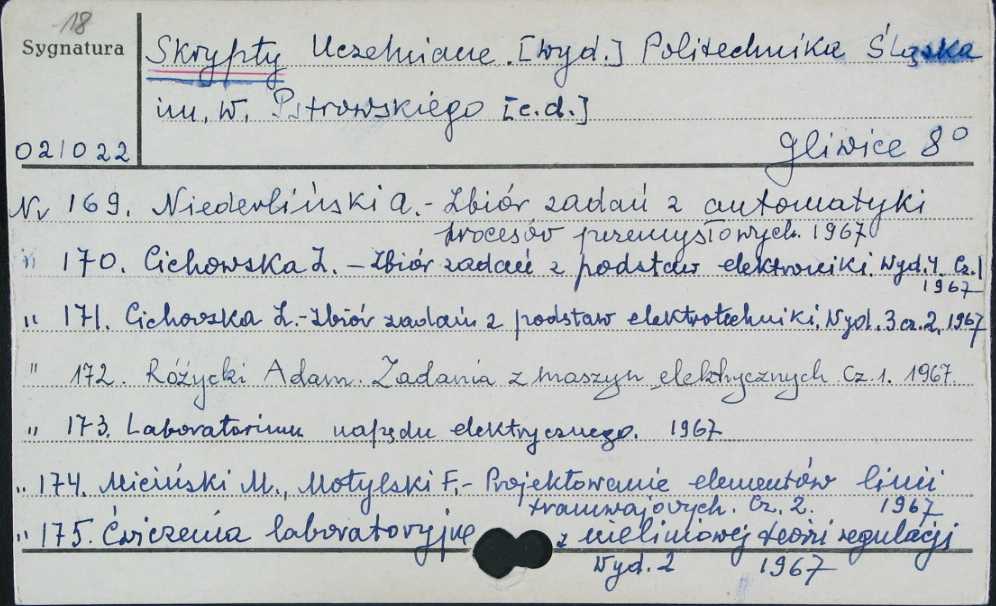 18
Sygnatura
Skrypty Uczelniane. [wyd.] Politechnika Śląska
im. W. Pstrowskiego [c.d.]
021022
Gliwice 8°
Nr 169. Niederliński A. - Zbiór zadań z automatyki
procesów przemysłowych. 1967
" 170. Cichowska Z. - Zbiór zadań z podstaw elektroniki. Wyd. 4. Cz. 1
1967
" 171. Cichowska Z. - Zbiór zadań z podstaw elektrotechniki. Wyd. 3 cz. 2. 1967
" 172. Różycki Adam. Zadania z maszyn elektrycznych. Cz. 1. 1967.
" 173. Laboratorium napędu elektrycznego. 1967
" 174. Miciński M., Motylski F. - Projektowanie elementów linii
tramwajowych. Cz. 2. 1967
" 175. Ćwiczenia laboratoryjne z nieliniowej teorii regulacji
Wyd. 2 1967